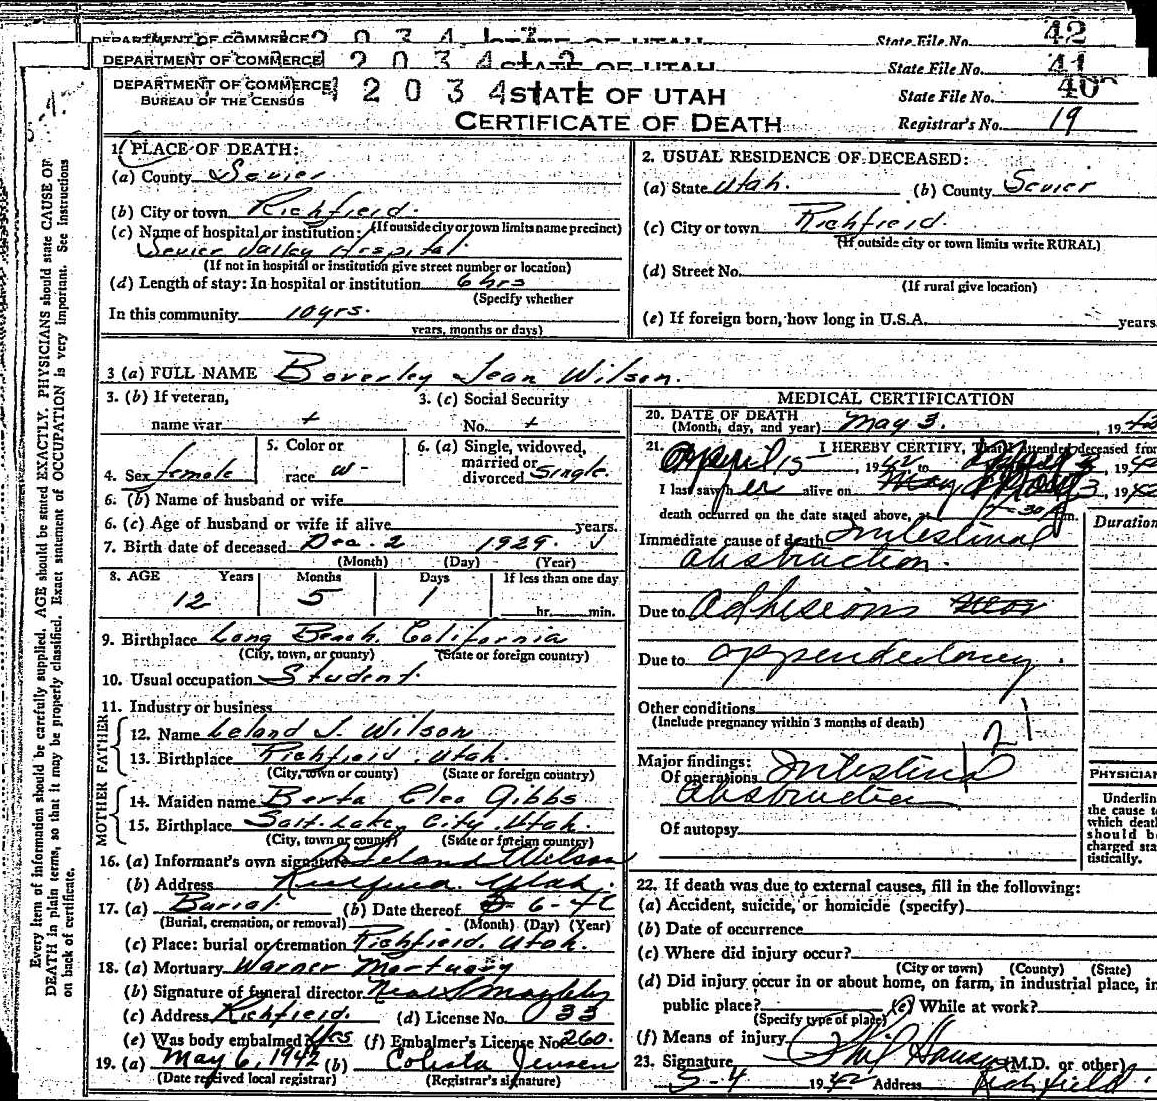 DEPARTMENT OF COMMERCE STATE OF UTAH State File No. 42
DEPARTMENT OF COMMERCE STATE OF UTAH State File No. 41
DEPARTMENT OF COMMERCE STATE OF UTAH State File No. 40
BUREAU OF THE CENSUS
CERTIFICATE OF DEATH Registrar's No. 19
1. PLACE OF DEATH:
(a) County Sevier
(b) City or town Richfield.
(If outside city or town limits name precinct)
(c) Name of hospital or institution:
Sevier Valley Hospital
(If not in hospital or institution give street number or location)
(d) Length of stay: In hospital or institution 6 hrs
(Specify whether
In this community 10 yrs.
years, months or days)
2. USUAL RESIDENCE OF DECEASED:
(a) State Utah. (b) County Sevier
(c) City or town Richfield.
(If outside city or town limits write RURAL)
(d) Street No.
(If rural give location)
(e) If foreign born, how long in U.S.A. years
3 (a) FULL NAME Beverley Jean Wilson.
3. (b) If veteran,
name war +
3. (c) Social Security
No. +
4. Sex female
5. Color or
race w-
6. (a) Single, widowed,
married or
divorced Single.
6. (b) Name of husband or wife
6. (c) Age of husband or wife if alive years.
7. Birth date of deceased Dec. 2 1929.
(Month) (Day) (Year)
8. AGE Years Months Days If less than one day
12 5 1 hr. min.
9. Birthplace Long Beach, California
(City, town, or county) (State or foreign country)
10. Usual occupation Student.
11. Industry or business
FATHER
12. Name Leland J. Wilson
13. Birthplace Richfield, Utah.
(City, town or county) (State or foreign country)
MOTHER
14. Maiden name Berta Cleo Gibbs
15. Birthplace Salt Lake City, Utah.
(City, town or county) (State or foreign country)
16. (a) Informant's own signature Leland Wilson
(b) Address Richfield Utah.
17. (a) Burial (b) Date thereof 5-6-42
(Burial, cremation, or removal) (Month) (Day) (Year)
(c) Place: burial or cremation Richfield, Utah.
18. (a) Mortuary Warner Mortuary
(b) Signature of funeral director Neal S Magleby
(c) Address Richfield. (d) License No. 33
(e) Was body embalmed? Yes (f) Embalmer's License No. 260.
19. (a) May 6, 1942 (b) Colista Jensen
(Date received local registrar) (Registrar's signature)
MEDICAL CERTIFICATION
20. DATE OF DEATH May 3. , 1942
(Month, day, and year)
21. I HEREBY CERTIFY, That I attended deceased from
April 15 , 1942 to 3, 1942
I last saw her alive on May 3, 1942
death occurred on the date stated above, at 7-30 m.
Duration
Immediate cause of death Intestinal
obstruction.
Due to Adhesions
Due to appendectomy.
Other conditions
(Include pregnancy within 3 months of death)
Major findings:
Of operations Intestinal
obstruction
Of autopsy
PHYSICIAN
Underline
the cause to
which death
should be
charged sta
tistically.
22. If death was due to external causes, fill in the following:
(a) Accident, suicide, or homicide (specify)
(b) Date of occurrence
(c) Where did injury occur?
(City or town) (County) (State)
(d) Did injury occur in or about home, on farm, in industrial place, in
public place? (e) While at work?
(Specify type of place)
(f) Means of injury
23. Signature (M.D. or other)
5-4 1942 Address Richfield
Every item of information should be carefully supplied. AGE should be stated EXACTLY. PHYSICIANS should state CAUSE OF
DEATH in plain terms, so that it may be properly classified. Exact statement of OCCUPATION is very important. See Instructions
on back of certificate.